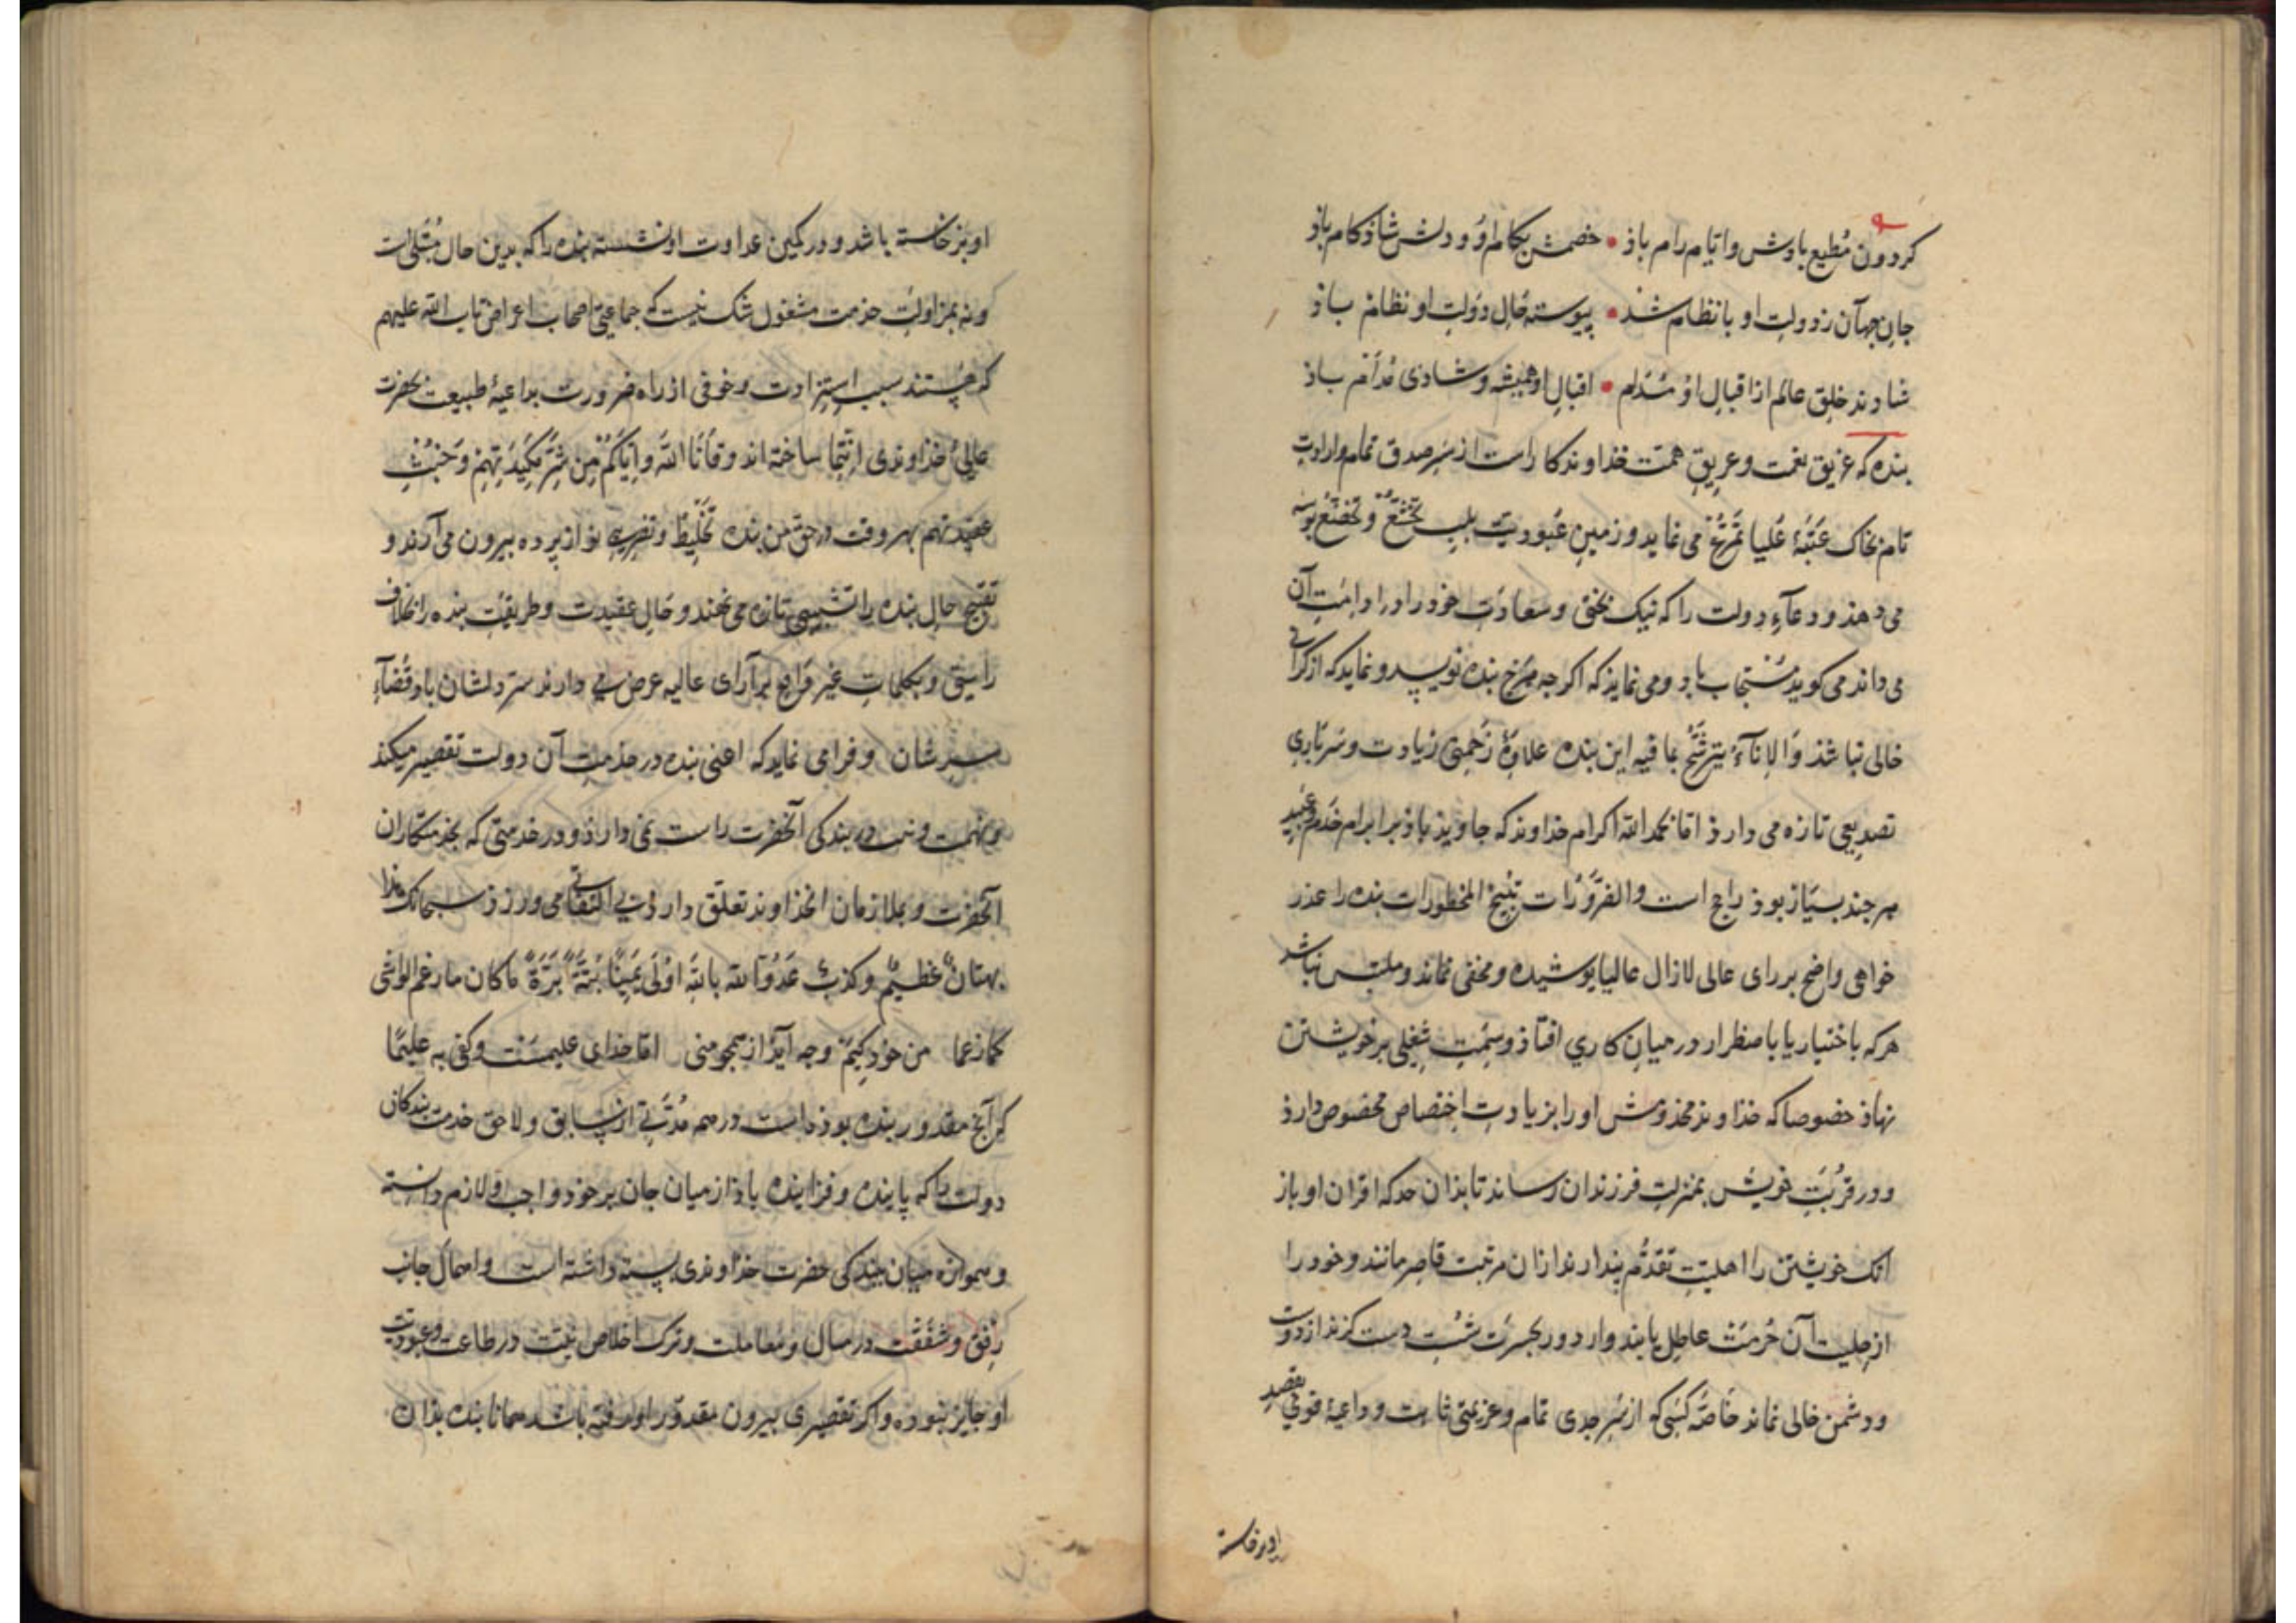 کردون مُطیع بادش و ایّام رام باذ • خصمش بکام او و دلش شاذکام باذ
جانِ جهان ز دولت او با نظام شد • پیوسته حال دولتِ او نظام باذ
شادند خلقِ عالم از اقبالِ او مُدام • اقبالِ او همیشه و شادی مُدام باذ
بنده که غریق نعمت و عریقِ همت خذاوندکا راست از سر صدق تمام و ارادت
تام بخاک عَتَبَهٔ عُلیا تَمَرُّغ می نماید و زمینِ عبودیت بلبِ تخشّع و تخضّع بوسه
می دهذ و دعآءِ دولت را که نیک بختی و سعادتِ خود را در ادامت آن
می داند می کوید مُستجاب باد و می نماید که اکرچه هرچ بنده نویسد و نماید که از کرانی
خالی نباشذ وَالاِناءُ یَترشَّحُ بما فیه این بنده علاوهٔ زحمتی زیادت و سرباری
تصدیعی تازه می دارذ امّا بحمد الله اکرام خذاوند که جاویذ باذ بر ابرام خدم و عبید
هرچند بسیار بوذ راجح است والضرورات تبیح المحظورات بنده را عذر
خواهی واضح بر رای عالی لازال عالیا پوشیده و مخفی نماند و ملتبس نباشد
هرکه باختیار یا باضطرار در میانِ کاری افتاذ و سِمَتِ شغلی بر خویشتن
نهاذ خصوصا که خذاوند مخذومش او را بزیادتِ اختصاص مخصوص دارذ
و در قربتِ خویش بمنزلتِ فرزندان رساند تا بذان حد که اقران او باز
انک خویشتن را اهلیّتِ تقدّم پندارند از ان مرتبت قاصر مانند و خود را
از حلیت آن حُرمت عاطل یابند و ارد در بحسرت دست کزند از دوست
و دشمن خالی نماند خاصّه کسی که از سر جدی تمام و عزیمتی ثابت و داعیهٔ قوی بقصدِ
او برخاسته
او برخاسته باشد و در کمین عداوت او نشسته بنده را که بدین حال مُبتلی است
و نه بمزاولتِ خدمت مشغول شک نیست که جماعتی اصحاب اعراض تاب الله علیهم
که هستند سبب استزادت و خوفی از راه ضرورت بداعیهٔ طبیعت بحضرت
عالیٔ خذاوندی التجا ساخته اند وقانا الله وایّاکم من شرّ مکیدتهم وخبث
عقیدتهم بهر وقت در حق من بنده تخلیط و تضریبی نو از پرده بیرون می آرند و
تقبیح حالِ بنده را تشبیبی تازه می نهند و حالِ عقیدت و طریقتِ بنده را بخلاف
راستی و بکلماتِ غیر واقع بر آرای عالیه عرض می دارند سر دلشان باد و قضآءِ
سر شان و فرا می نماید که اعنی بنده در خذمتِ آن دولت تقصیر میکند
و نهمت در بندکی آنحضرت راست نمی دارذ و در خدمتی که بخدمتکاران
آنحضرت و بملازمان انخذاوند تعلّق دارذ بی التفاتی می ورزذ سبحانک هذا
بهتانٌ عظیمٌ وکذب عَدُوّ الله بالله اُولی یمیناً بَتّةً بَرّةً ما کان ما زعم الواشی
کما زعما من خود کیم وچه آیذ از همچو منی امّا خذای علیمست وکفی به علیمًا
کی آنچ مقدورِ بنده بوذه است در همه مدّتی از سابق و لاحق خدمت بندکان
دولت را که پاینده و فزاینده باذ از میان جان بر خود واجب و لازم دانسته
و همواره میان ببندکی حضرت خذاوندی بسته داشته است و اهمال جانب
رفق و شفقت در سال و معاملت و ترک اخلاص نیّت در طاعت و عبودیت
او جایز نبوده و اکر تقصیری بیرون مقدورِ او رفته باشد همانا بنده بذان